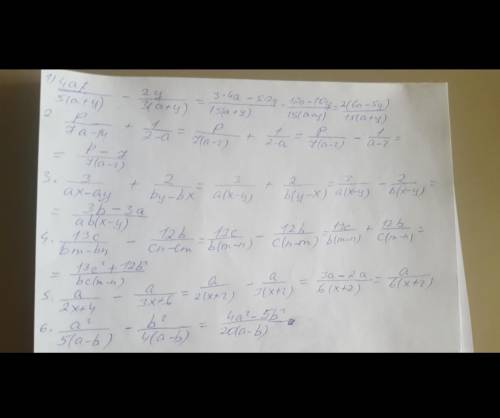 1) 4a/5(a+y) - 2y/3(a+y) = 3·4a-5·2y/15(a+y) = 12a-10y/15(a+y) = 2(6a-5y)/15(a+y)
2. p/7a-14 + 1/2-a = p/7(a-2) + 1/2-a = p/7(a-2) - 1/a-2 =
= p-7/7(a-2)
3. 3/ax-ay + 2/by-bx = 3/a(x-y) + 2/b(y-x) = 3/a(x-y) - 2/b(x-y) =
= 3b-3a/ab(x-y)
4. 13c/bm-bn - 12b/cn-cm = 13c/b(m-n) - 12b/c(n-m) = 13c/b(m-n) + 12b/c(m-n) =
= 13c²+12b²/bc(m-n)
5. a/2x+4 - a/3x+6 = a/2(x+2) - a/3(x+2) = 3a-2a/6(x+2) = a/6(x+2)
6. a²/5(a-b) - b²/4(a-b) = 4a²-5b²/20(a-b)